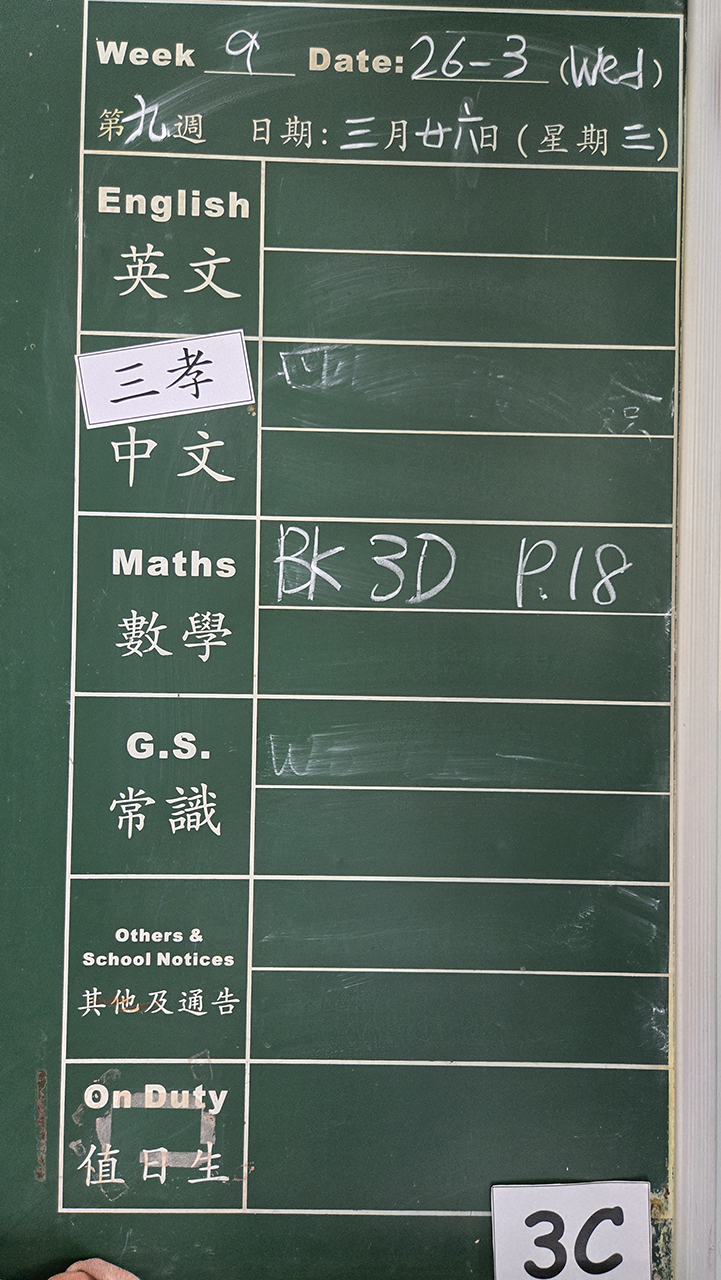 Week 9 Date: 26-3 (Wed)
第九週 日期: 三月廿六日 (星期三)
English
英文
三孝
中文
Maths BK 3D P.18
數學
G.S.
常識
Others &
School Notices
其他及通告
On Duty
值日生
3C